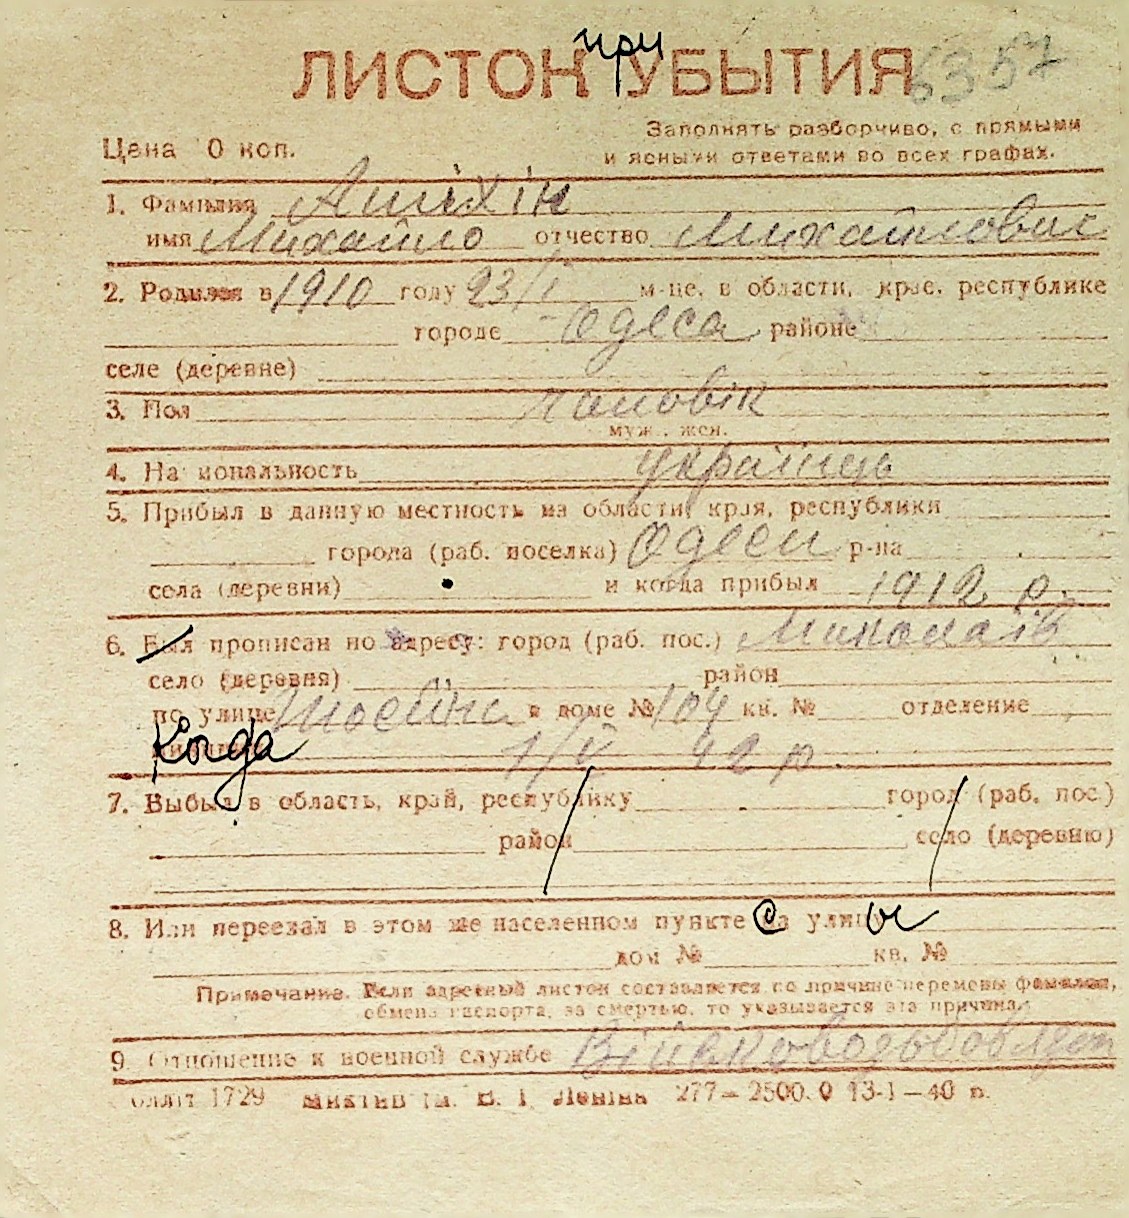 при
ЛИСТОК УБЫТИЯ 6357
Заполнять разборчиво, с прямыми
Цена 0 коп.
и ясными ответами во всех графах.
1. Фамилия
имя Михайло отчество Михайлович
2. Родился в 1910 году 23/I м-це, в области, крае, республике
городе Одеса районе
селе (деревне)
3. Пол чоловік
муж., жен.
4. Национальность українець
5. Прибыл в данную местность из области, края, республики
города (раб. поселка) Одеси р-на
села (деревни) и когда прибыл 1912 р.
6. Был прописан по адресу: город (раб. пос.) Миколаїв
село (деревня) район
по улице в доме № 104 кв. № отделение
Когда 42 р.
7. Выбыл в область, край, республику город (раб. пос.)
район село (деревню)
8. Или переехал в этом же населенном пункте с улицы
дом № кв. №
Примечание. Если адресный листок составляется по причине перемены фамилии,
обмена паспорта, за смертью, то указывается эта причина.
9. Отношение к военной службе
1729 ім. В. І. Леніна 277—2500.0 13-I—40 р.